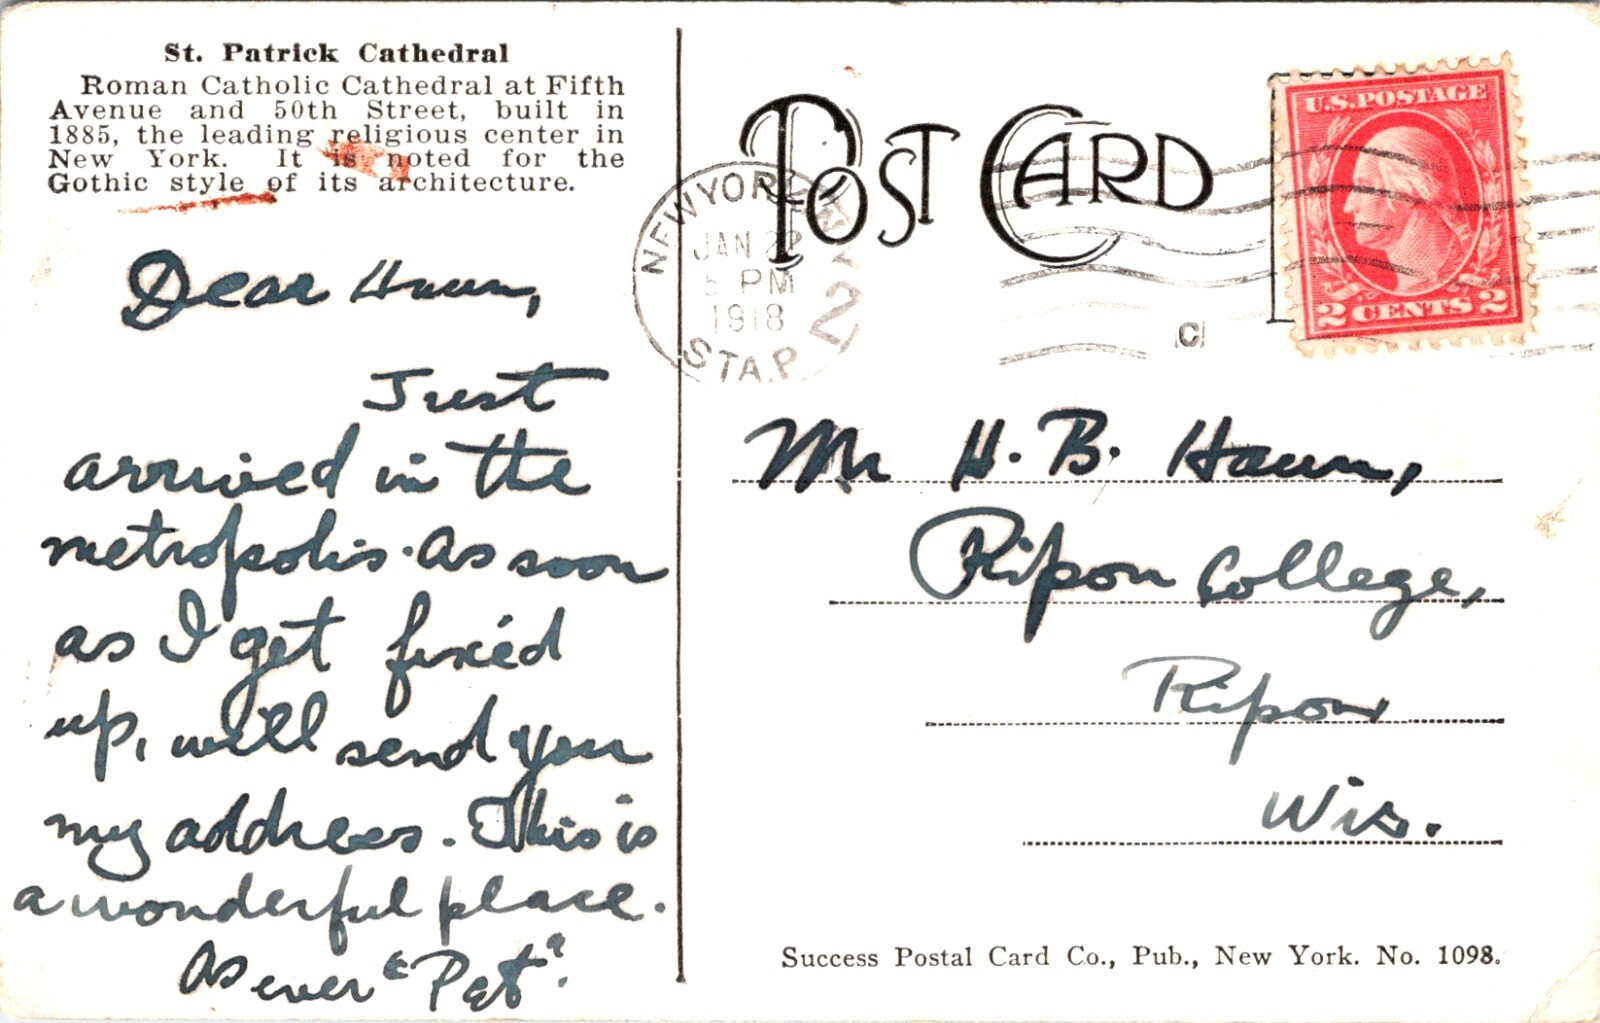 St. Patrick Cathedral
Roman Catholic Cathedral at Fifth
Avenue and 50th Street, built in
1885, the leading religious center in
New York. It is noted for the
Gothic style of its architecture.
Dear Haun,
Just
arrived in the
metropolis. As soon
as I get fixed
up, will send you
my address. This is
a wonderful place.
As ever "Pat".
POST CARD
NEW YORK, N.Y.
JAN 22
5 PM
1918
STA. P
2
U.S. POSTAGE
2 CENTS 2
C
Mr H. B. Haun,
Ripon College,
Ripon
Wis.
Success Postal Card Co., Pub., New York. No. 1098.